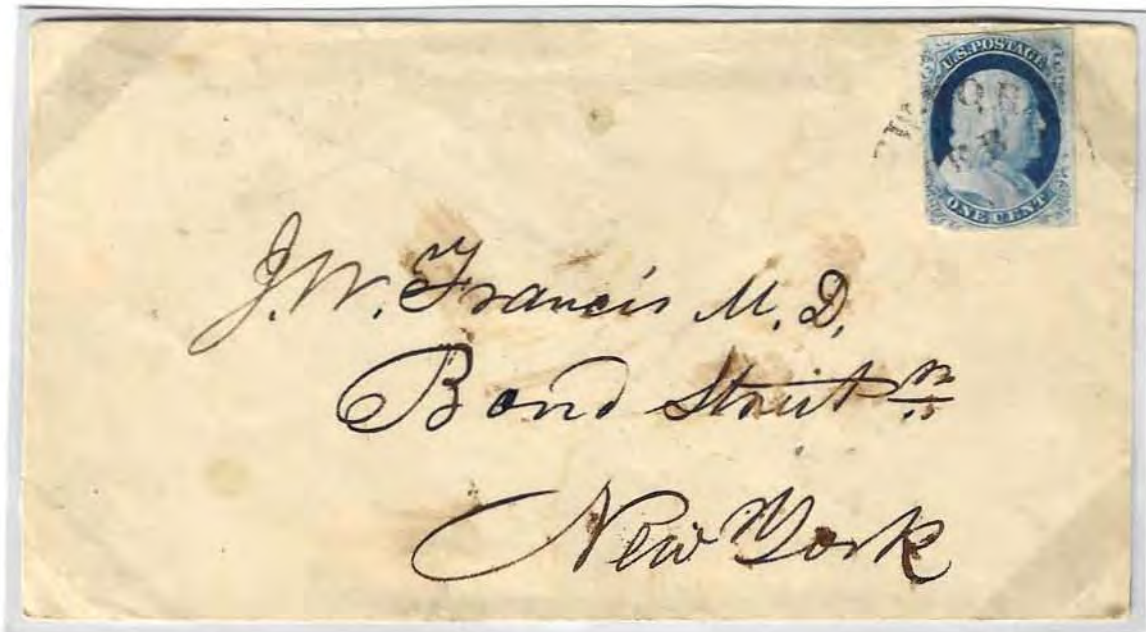 U.S. POSTAGE
ONE CENT
J. W. Francis M. D.
Bond Street
New York